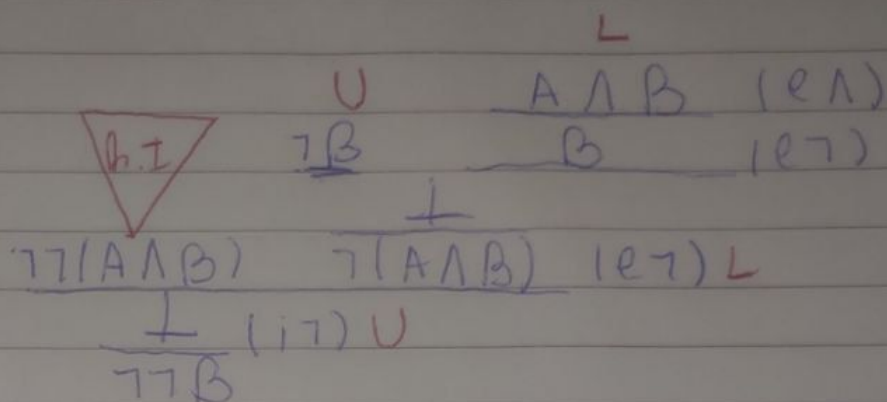 L
U A ∧ B (e∧)
h.I ¬B B (e¬)
⊥
¬¬(A ∧ B) ¬(A ∧ B) (e¬) L
⊥ (i¬) U
¬¬B